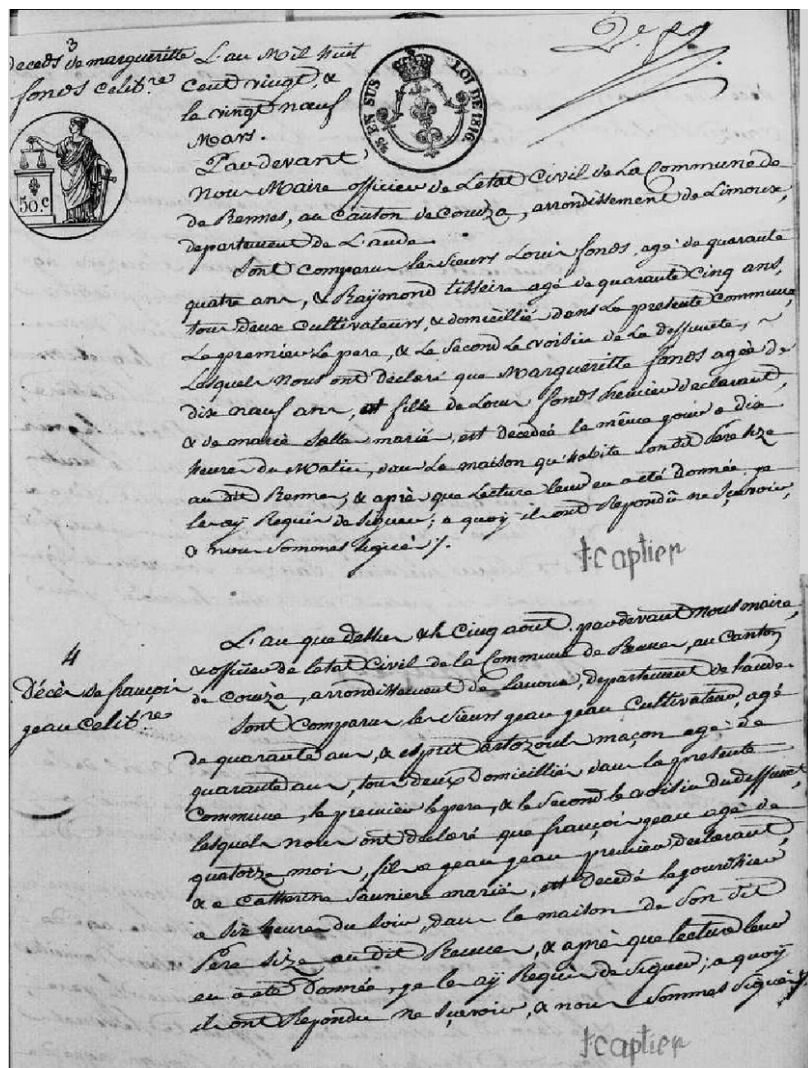 3
deceds de margueritte
fonds celibre
50.c
S EN SUS LOI DE 1816.
L'an Mil huit
Cent vingt, &
le vingt nœuf
Mars.
Pardevant
Nous Maire officier de L'etat Civil de La Commune de
de Rennes, au Canton de Couiza, arrondissement de Limoux,
departement de L'aude.
Sont Comparus les sieurs Louis fonds, agé de quarante
quatre ans, & Raÿmond tisseire agé de quarante Cinq ans,
tous deux Cultivateurs, & domicilliés dans La presente Commune,
Le premier Le pere, & Le Second Le voisin de La deffunte,
Lesquels Nous ont déclaré que Margueritte fonds agée de
dix nœuf ans, fille de Louis fonds premier declarant,
& de marie mariés, est decedée le même jour a dix
heures du Matin, dans Le maison qu'habite Sondit Pere size
au dit Rennes, & après que Lecture leur en a été donnée, je
les aÿ Requis de signer; a quoy ils ont Repondû ne sçavoir,
& nous Sommes signés /.
f. captier
4
Décès de françois
jeau celibre
L'an que dessus & le Cinq août, pardevant Nous maire,
& officier de l'etat Civil de la Commune de Rennes, au Canton
de Couiza, arrondissement de Limoux, departement de l'aude.
Sont Comparus les sieurs jeau jeau Cultivateur, agé
de quarante ans, & esprit maçon agé de
quarante ans, tous deux Domicilliés dans la presente
Commune, le premier le pere, & le second le voisin du deffunt,
lesquels nous ont declaré que françois jeau agé de
quatorze mois, fils a jeau jeau premier declarant,
& a Catherine Sauniere mariés, est decedé le jourdhier
a six heures du soir, dans la maison de Son dit
Pere size au dit Rennes, & après que lecture leur
en a été Donnée, je les aÿ Requis de signer; a quoy
ils ont Repondu ne sçavoir, & nous Sommes signés /.
f. captier